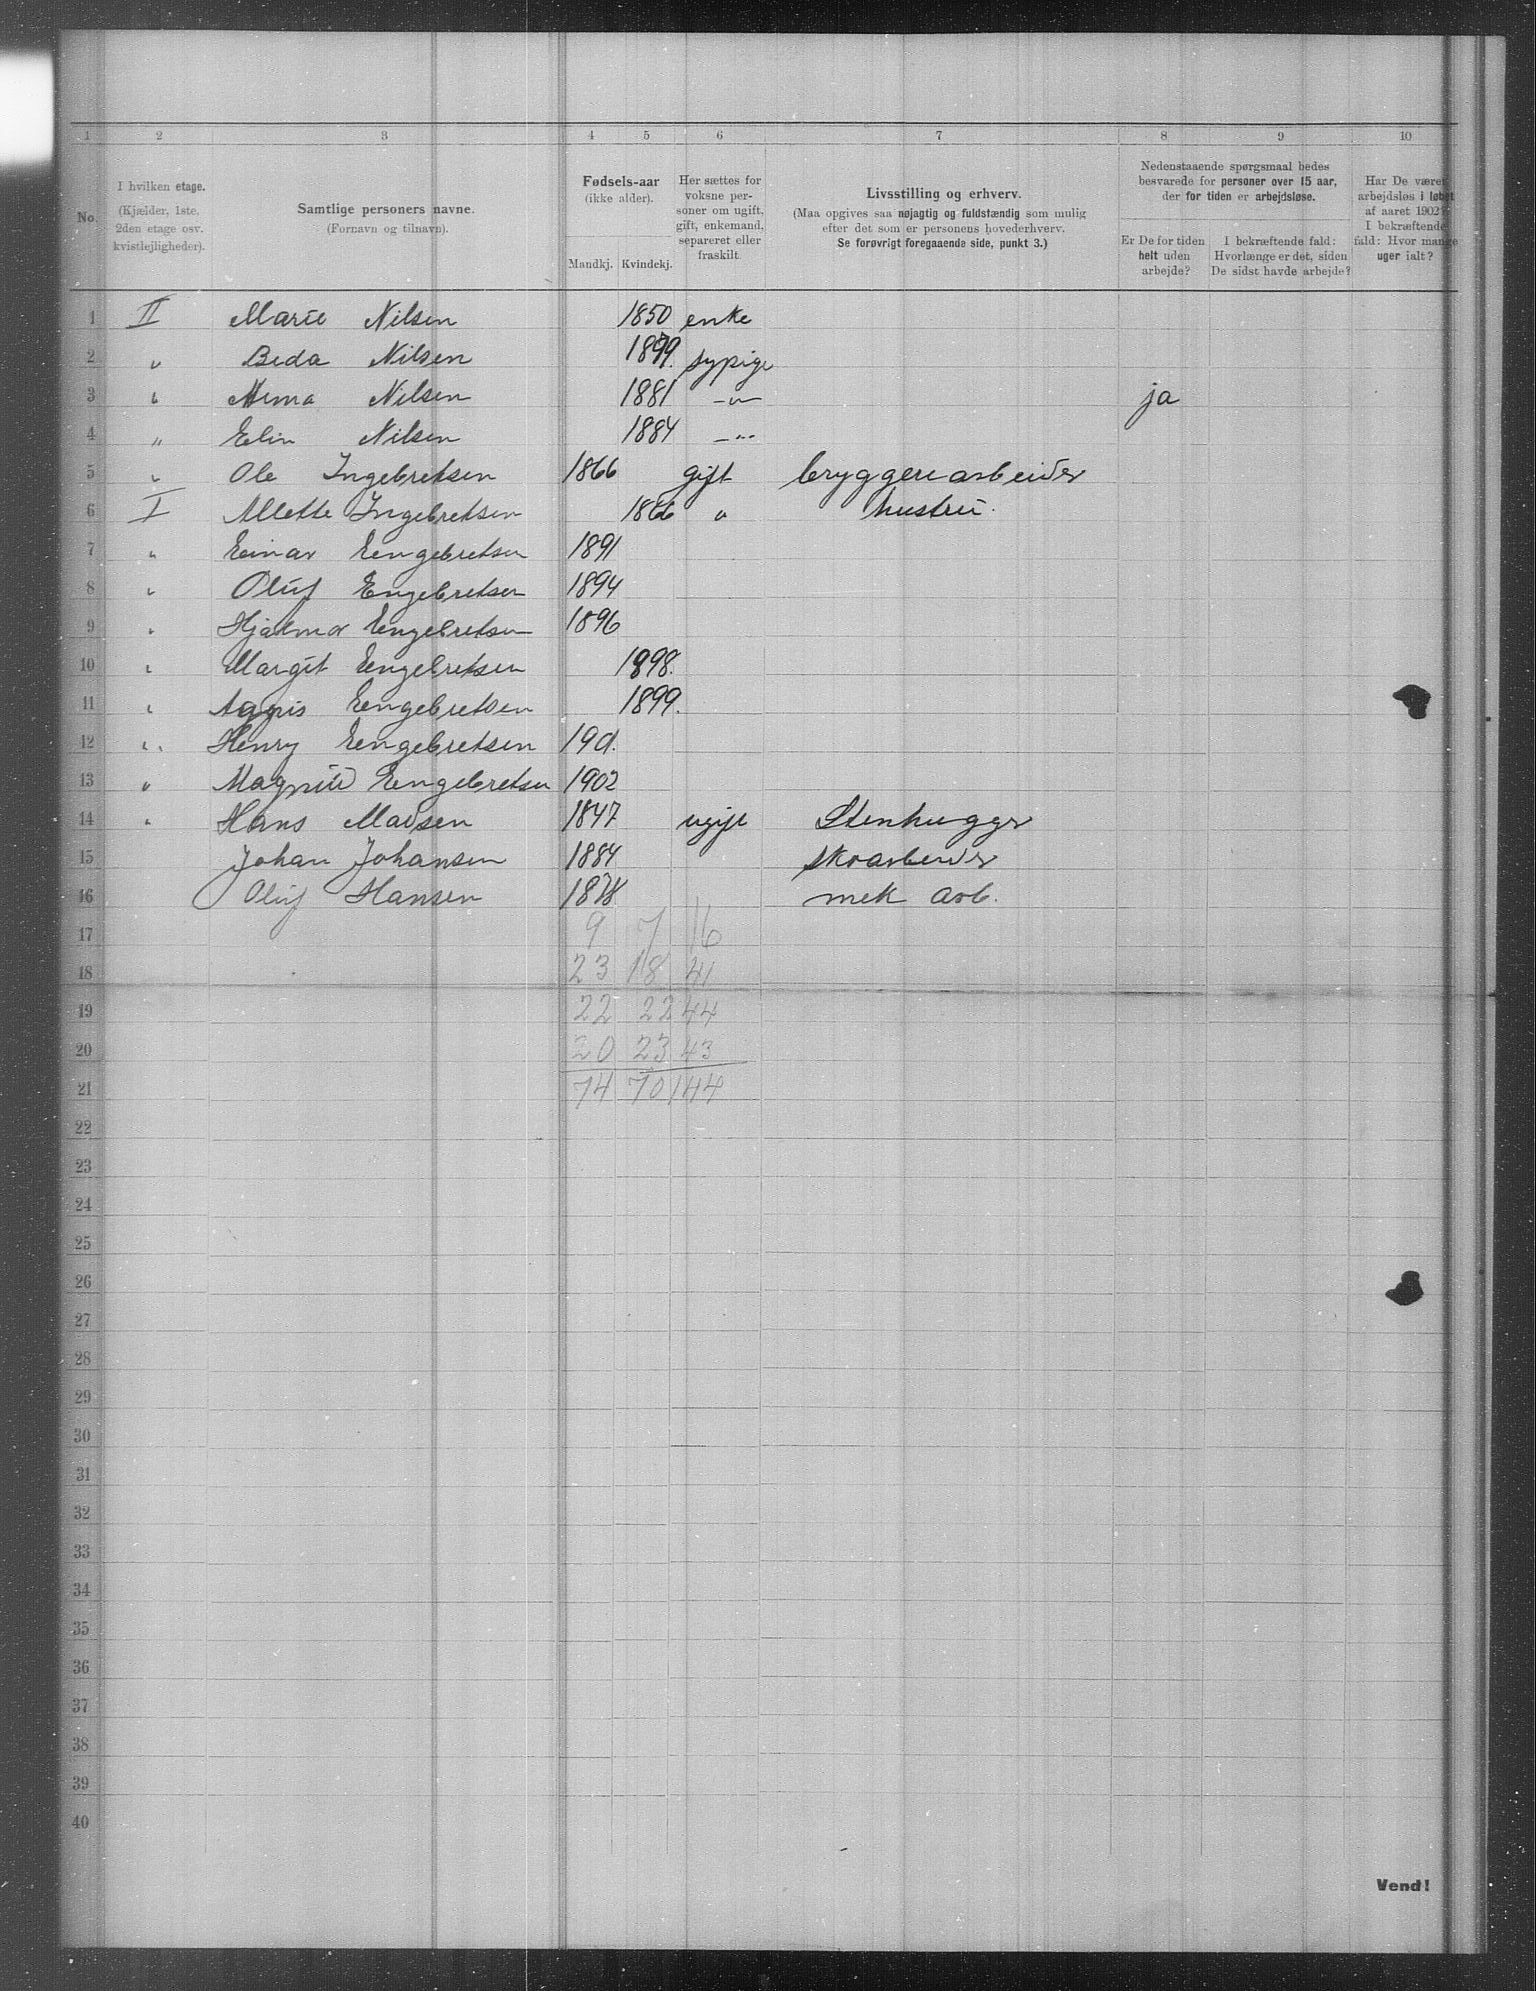 1 2 3 4 5 6 7 8 9 10
No.
I hvilken etage.
(Kjælder, 1ste.
2den etage osv.
kvistlejligheder).
Samtlige personers navne.
(Fornavn og tilnavn).
Fødsels-aar
(ikke alder).
Mandkj. Kvindekj.
Her sættes for
voksne per-
soner om ugift,
gift, enkemand,
separeret eller
fraskilt.
Livsstilling og erhverv.
(Maa opgives saa nøjagtig og fuldstændig som mulig
efter det som er personens hovederhverv.
Se forøvrigt foregaaende side, punkt 3.)
Nedenstaaende spørgsmaal bedes
besvarede for personer over 15 aar,
der for tiden er arbejdsløse.
Er De for tiden
helt uden
arbejde?
I bekræftende fald:
Hvorlænge er det, siden
De sidst havde arbejde?
Har De været
arbejdsløs i løbet
af aaret 1902?
I bekræftende
fald: Hvor mange
uger ialt?
1 II Marie Nilsen 1850 enke
2 " Beda Nilsen 1879. sypige
3 " Nilsen 1881 -"- ja
4 " Elin Nilsen 1884 -"-
5 " Ole Ingebretsen 1866 gift bryggeriarbeider
6 I Alette Ingebretsen 1866 " hustru.
7 " Einar Eengebretsen 1891
8 " Oluf Engebretsen 1894
9 " Hjalmar Eengebretsen 1896
10 " Margit Eengebretsen 1898.
11 " Agnis Eengebretsen 1899.
12 " Henry Eengebretsen 1901.
13 " Eengebretsen 1902
14 " Hans Madsen 1847 ugift Stenhugger
15 Johan Johansen 1884 skoarbeider
16 Oluf Hansen 1878 mek arb.
17 9 7 16
18 23 18 41
19 22 22 44
20 20 23 43
21 74 70 144
22
23
24
25
26
27
28
29
30
31
32
33
34
35
36
37
38
39
40
Vend!